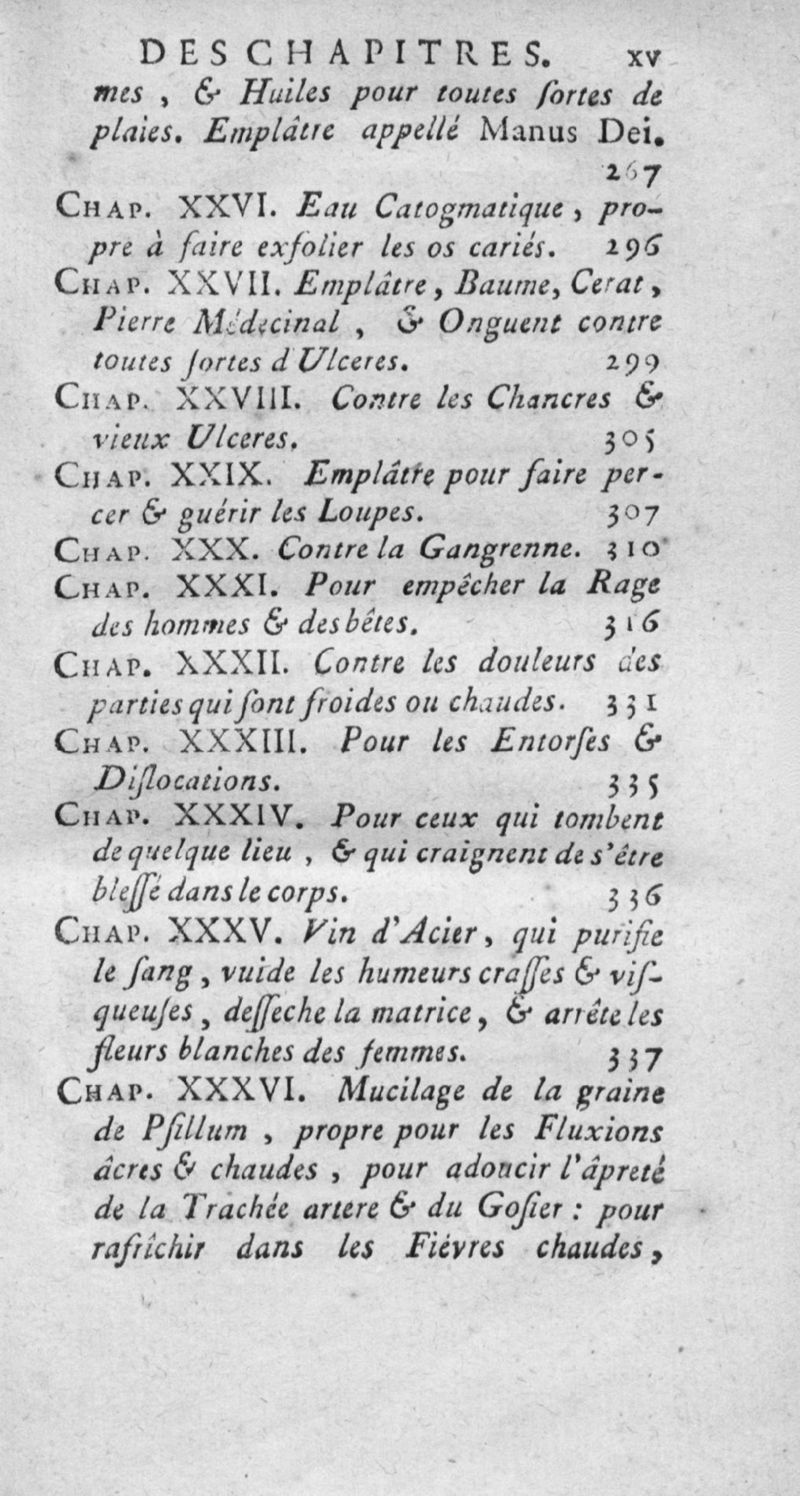 DES CHAPITRES. xv
mes , & Huiles pour toutes ſortes de
plaies. Emplâtre appellé Manus Dei.
267
CHAP. XXVI. Eau Catogmatique , pro-
pre à faire exfolier les os cariés. 296
CHAP. XXVII. Emplâtre, Baume, Cerat,
Pierre Médecinal , & Onguent contre
toutes ſortes d'Ulceres. 299
CHAP. XXVIII. Contre les Chancres &
vieux Ulceres. 305
CHAP. XXIX. Emplâtre pour faire per-
cer & guérir les Loupes. 307
CHAP. XXX. Contre la Gangrenne. 310
CHAP. XXXI. Pour empêcher la Rage
des hommes & des bêtes. 316
CHAP. XXXII. Contre les douleurs des
parties qui ſont froides ou chaudes. 331
CHAP. XXXIII. Pour les Entorſes &
Diſlocations. 335
CHAP. XXXIV. Pour ceux qui tombent
de quelque lieu , & qui craignent de s'être
bleſſé dans le corps. 336
CHAP. XXXV. Vin d'Acier, qui purifie
le ſang , vuide les humeurs craſſes & viſ-
queuſes , deſſeche la matrice, & arrête les
fleurs blanches des femmes. 337
CHAP. XXXVI. Mucilage de la graine
de Pſillum , propre pour les Fluxions
âcres & chaudes , pour adoucir l'âpreté
de la Trachée artere & du Goſier : pour
rafrîchir dans les Fiévres chaudes,